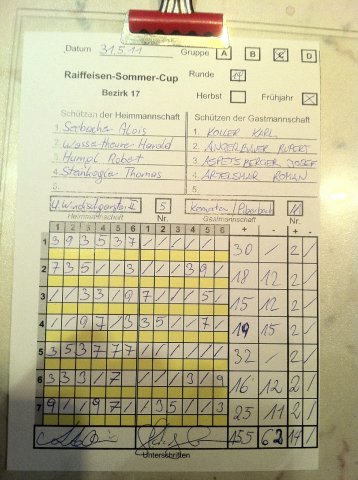 Datum 31.5.11 Gruppe A B C D
Raiffeisen-Sommer-Cup Runde 14
Bezirk 17 Herbst Frühjahr X
Schützen der Heimmannschaft Schützen der Gastmannschaft
1. Alois 1. KOLLER KARL
2. Harald 2. RUPERT
3. Humpl Robert 3. ASPETSBERGER JOSEF
4. Thomas 4. ROMAN
5. 5.
5 11
Heimmannschaft Nr. Gastmannschaft + - Nr. + -
1 2 3 4 5 6 1 2 3 4 5 6
1 3 9 3 5 3 7 / / / / / / 30 / 2 /
2 7 3 5 / / 3 / / / 3 9 / 18 12 2 /
3 / / 3 3 / 9 7 / / / 5 / 15 12 2 /
4 / / 9 7 / 3 3 5 / / 7 / 19 15 2 /
5 3 5 3 7 7 7 / / / / / / 32 / 2 /
6 3 3 3 / 7 / / / / 3 / 9 16 12 2 /
7 9 / / 9 7 / / 3 5 / / 3 25 11 2 /
155 62 14 /
Unterschriften